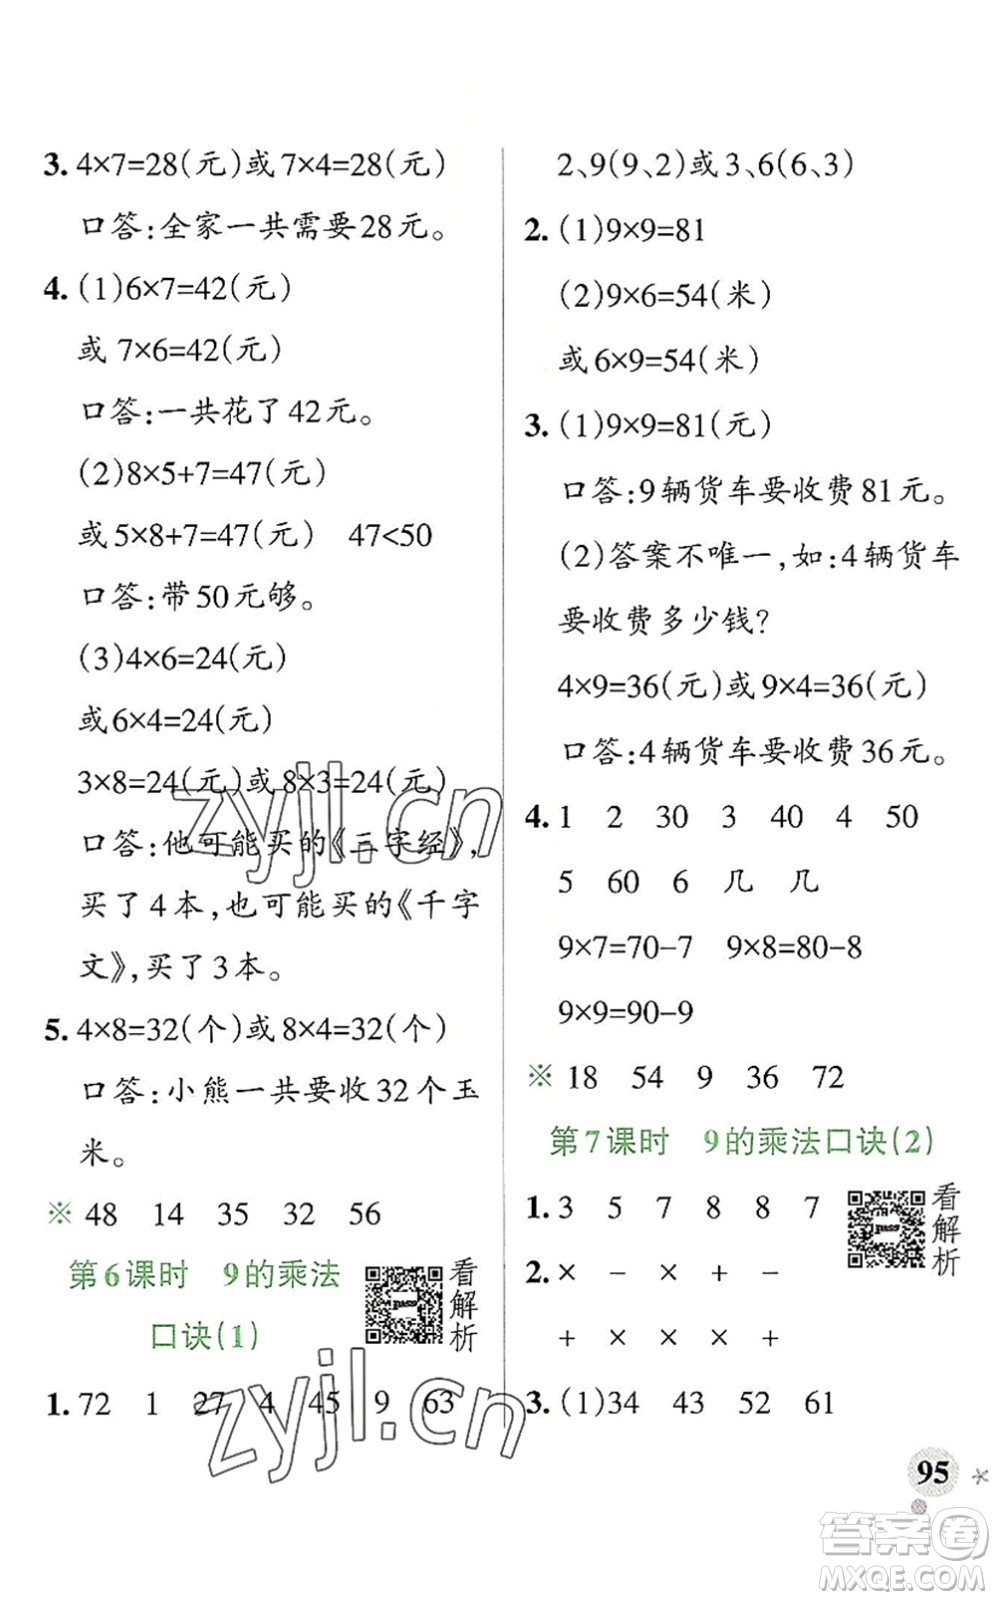 3. 4×7=28(元)或 7×4=28(元)
口答:全家一共需要28元。
4. (1)6×7=42(元)
或 7×6=42(元)
口答:一共花了42元。
(2)8×5+7=47(元)
或5×8+7=47(元) 47<50
口答:带50元够。
(3)4×6=24(元)
或6×4=24(元)
3×8=24(元)或 8×3=24(元)
口答:他可能买的《三字经》,
买了4本,也可能买的《千字
文》,买了3本。
5. 4×8=32(个)或8×4=32(个)
口答:小熊一共要收32个玉
米。
※ 48 14 35 32 56
第6课时 9的乘法
口诀(1)
看解析
1. 72 1 27 4 45 9 63
2、9(9、2)或3、6(6、3)
2. (1)9×9=81
(2)9×6=54(米)
或6×9=54(米)
3. (1)9×9=81(元)
口答:9辆货车要收费81元。
(2)答案不唯一,如:4辆货车
要收费多少钱?
4×9=36(元)或9×4=36(元)
口答:4辆货车要收费36元。
4. 1 2 30 3 40 4 50
5 60 6 几 几
9×7=70-7 9×8=80-8
9×9=90-9
※ 18 54 9 36 72
第7课时 9的乘法口诀(2)
1. 3 5 7 8 8 7
看解析
2. × - × + -
+ × × × +
3. (1)34 43 52 61
95
zyjl.cn
zyjl.cn
答案卷
MXQE.COM